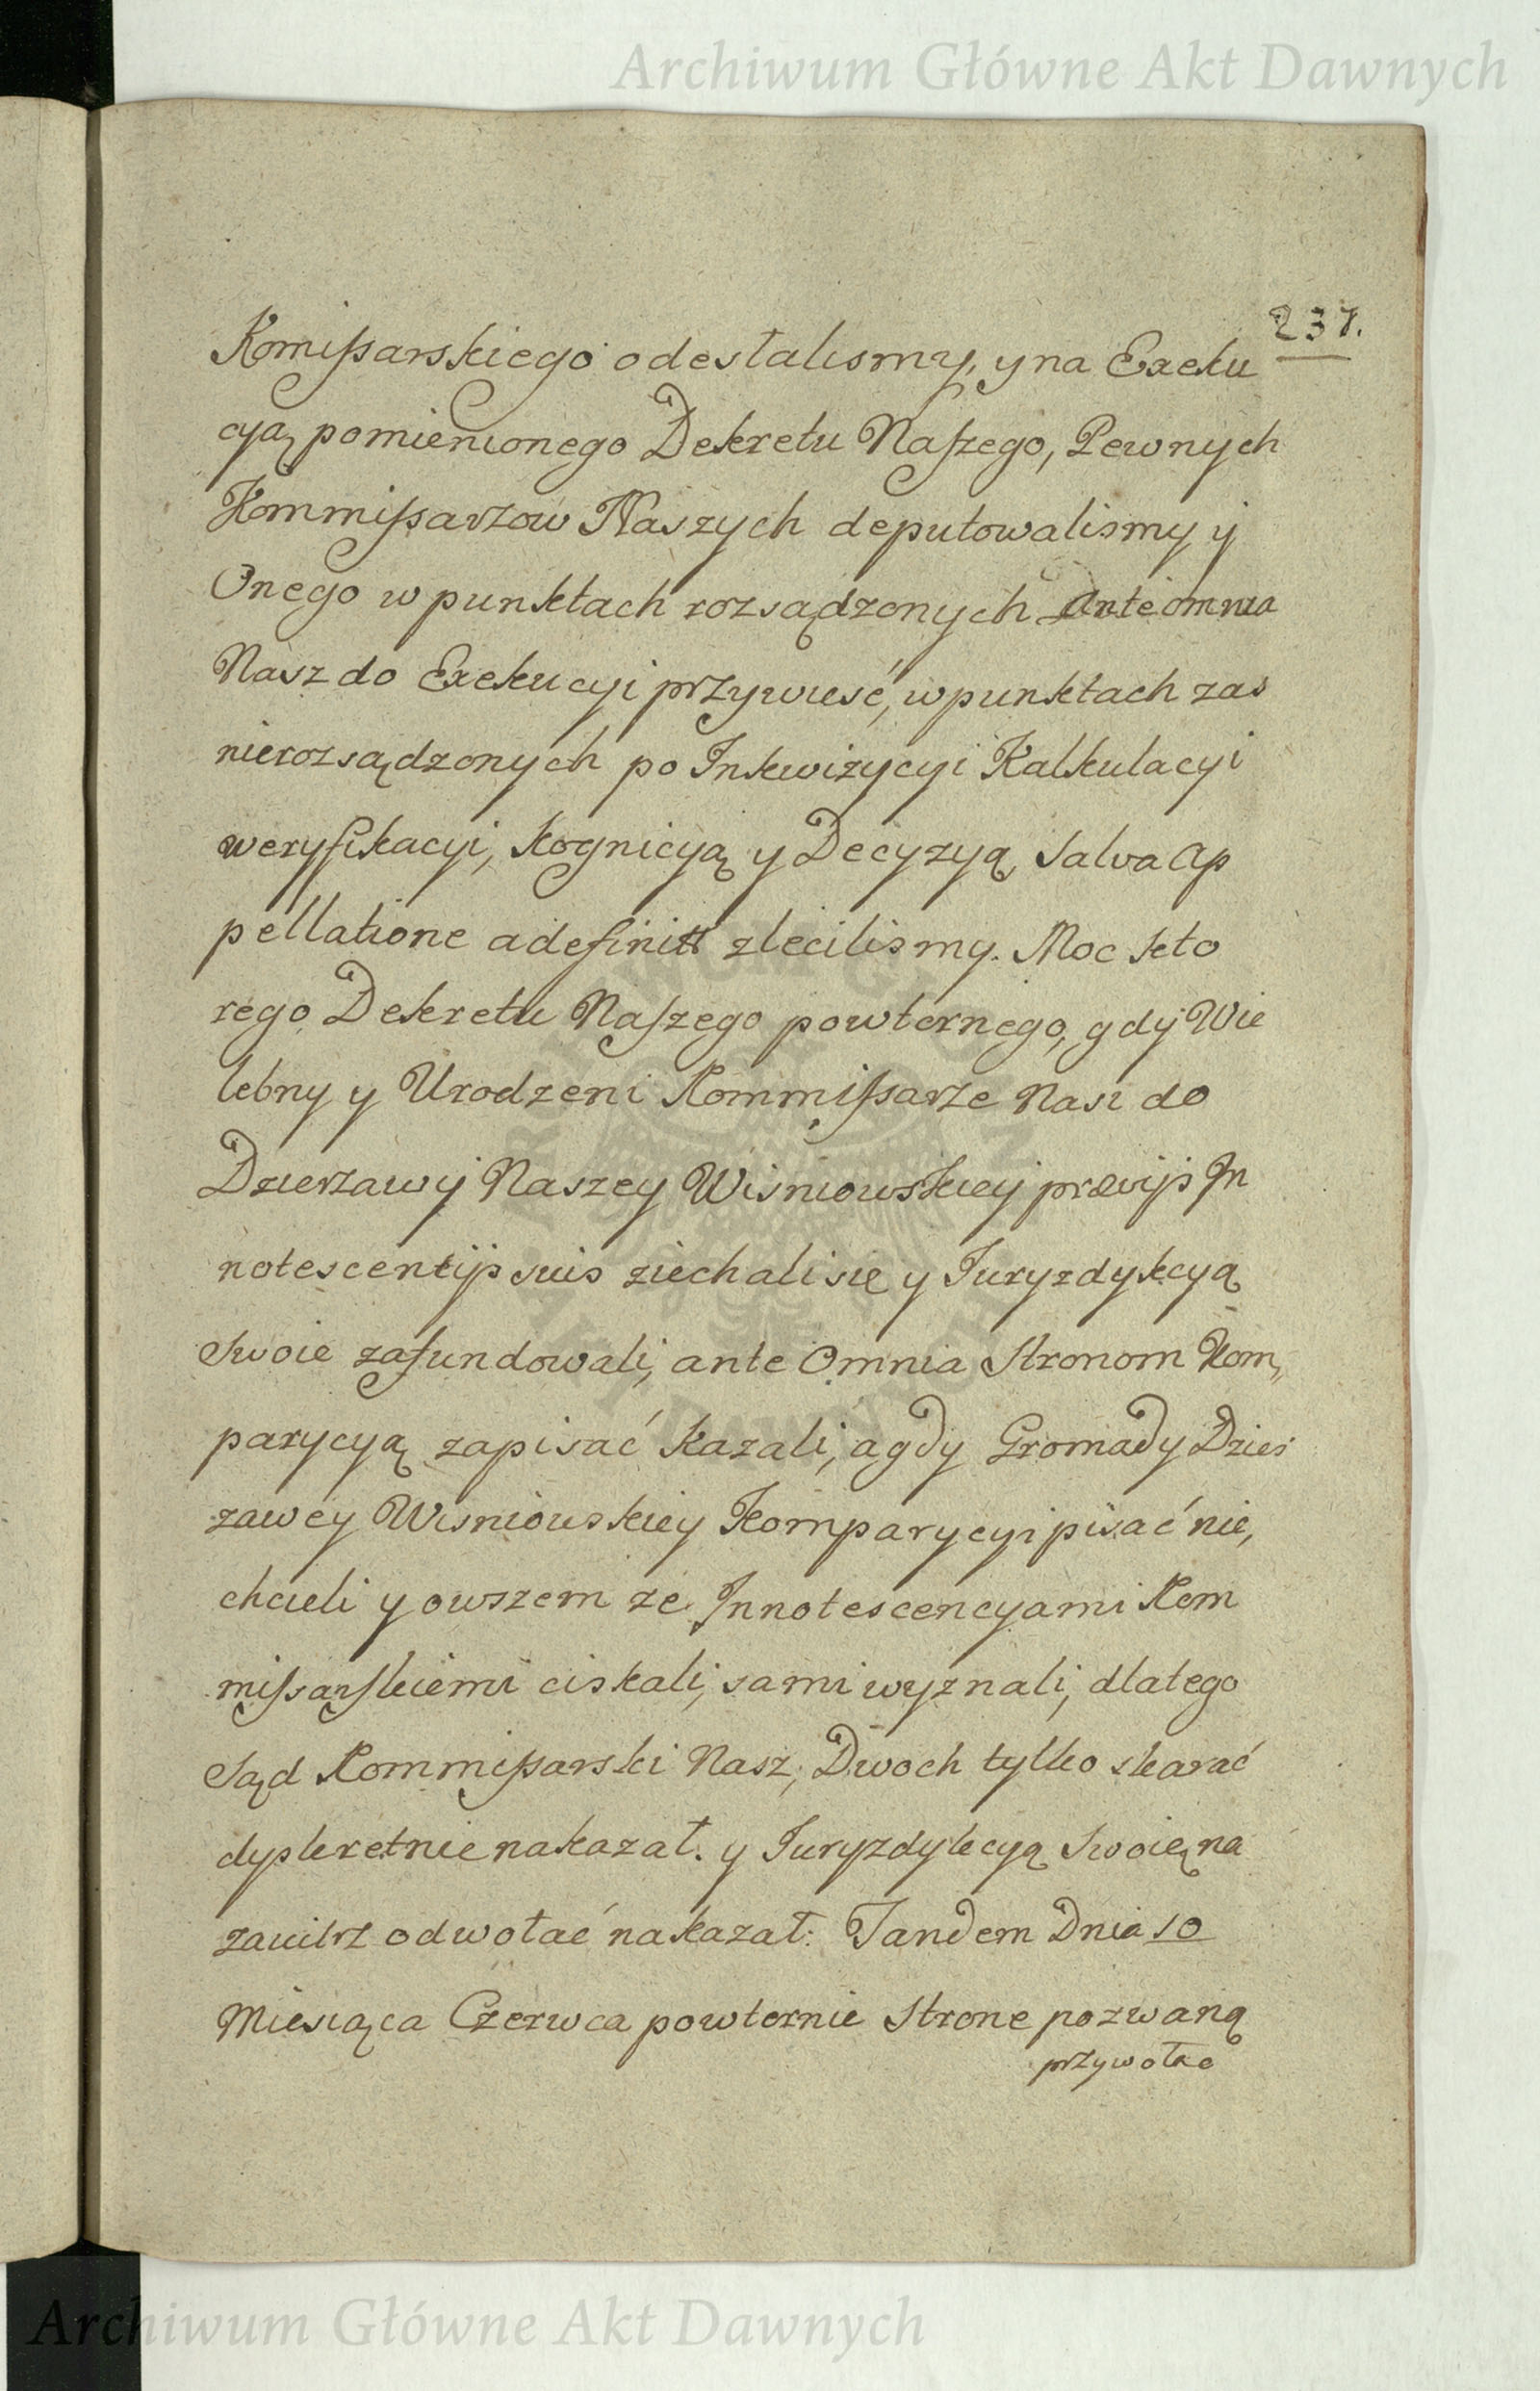 Archiwum Główne Akt Dawnych
237.
Komißarskiego odestalismy, y na Exeku
cyą pomienionego Dekretu Naszego, Pewnych
Kommißarzow Naszych deputowalismy ÿ
Onego w punktach rozsądzonych Ante omnia
Nasz do Exekucyi przywiesć, w punktach zas
nierozsądzonych po Inkwizycyi Kalkulacyi
weryfikacyi, kognicyą y Decyzyą Salva Ap
pellatione a definitt zlecilismy. Moc kto
rego Dekretu Naszego powtornego, gdÿ Wie
lebny y Urodzeni Kommißarze Nasi do
Dzierzawÿ Naszey Wisniowskieÿ prævijs In
notescentijs suis ziechali się y Juryzdykcyą
swoie zafundowali, ante Omnia Stronom Kom„
parycyą zapisać kazali, a gdy Gromady Dzier
zawey Wisniowskiey Komparycyi pisać nie,
chcieli y owszem ze Innotescencyami Kom
mißarskiemi ciskali, sami wyznali, dlatego
Sąd Kommißarski Nasz, Dwoch tylko skarać
dyskretnie nakazał. y Juryzdykcyą Swoię na
zaiutrz odwołać nakazał: Tandem Dnia 10
Miesiąca Czerwca powtornie Strone pozwaną
przywołac
Archiwum Główne Akt Dawnych